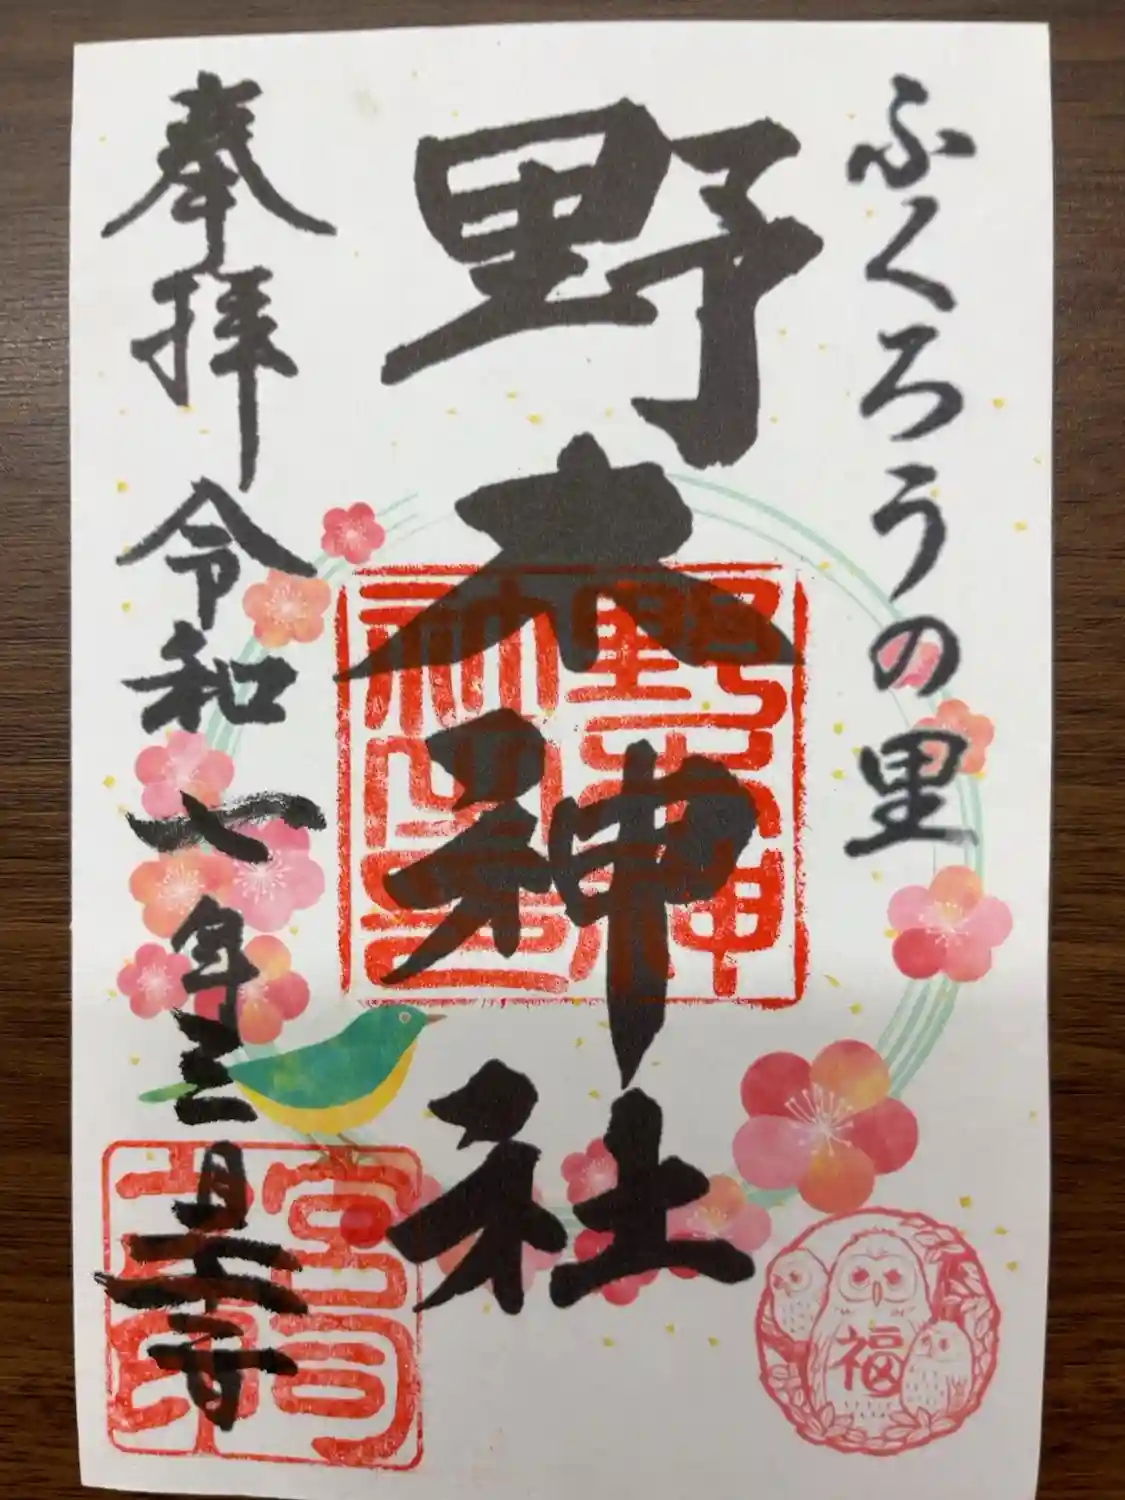 ふくろうの里
野木神社
奉拝 令和七年三月二十一日
野木神社之印
宮司之印
福